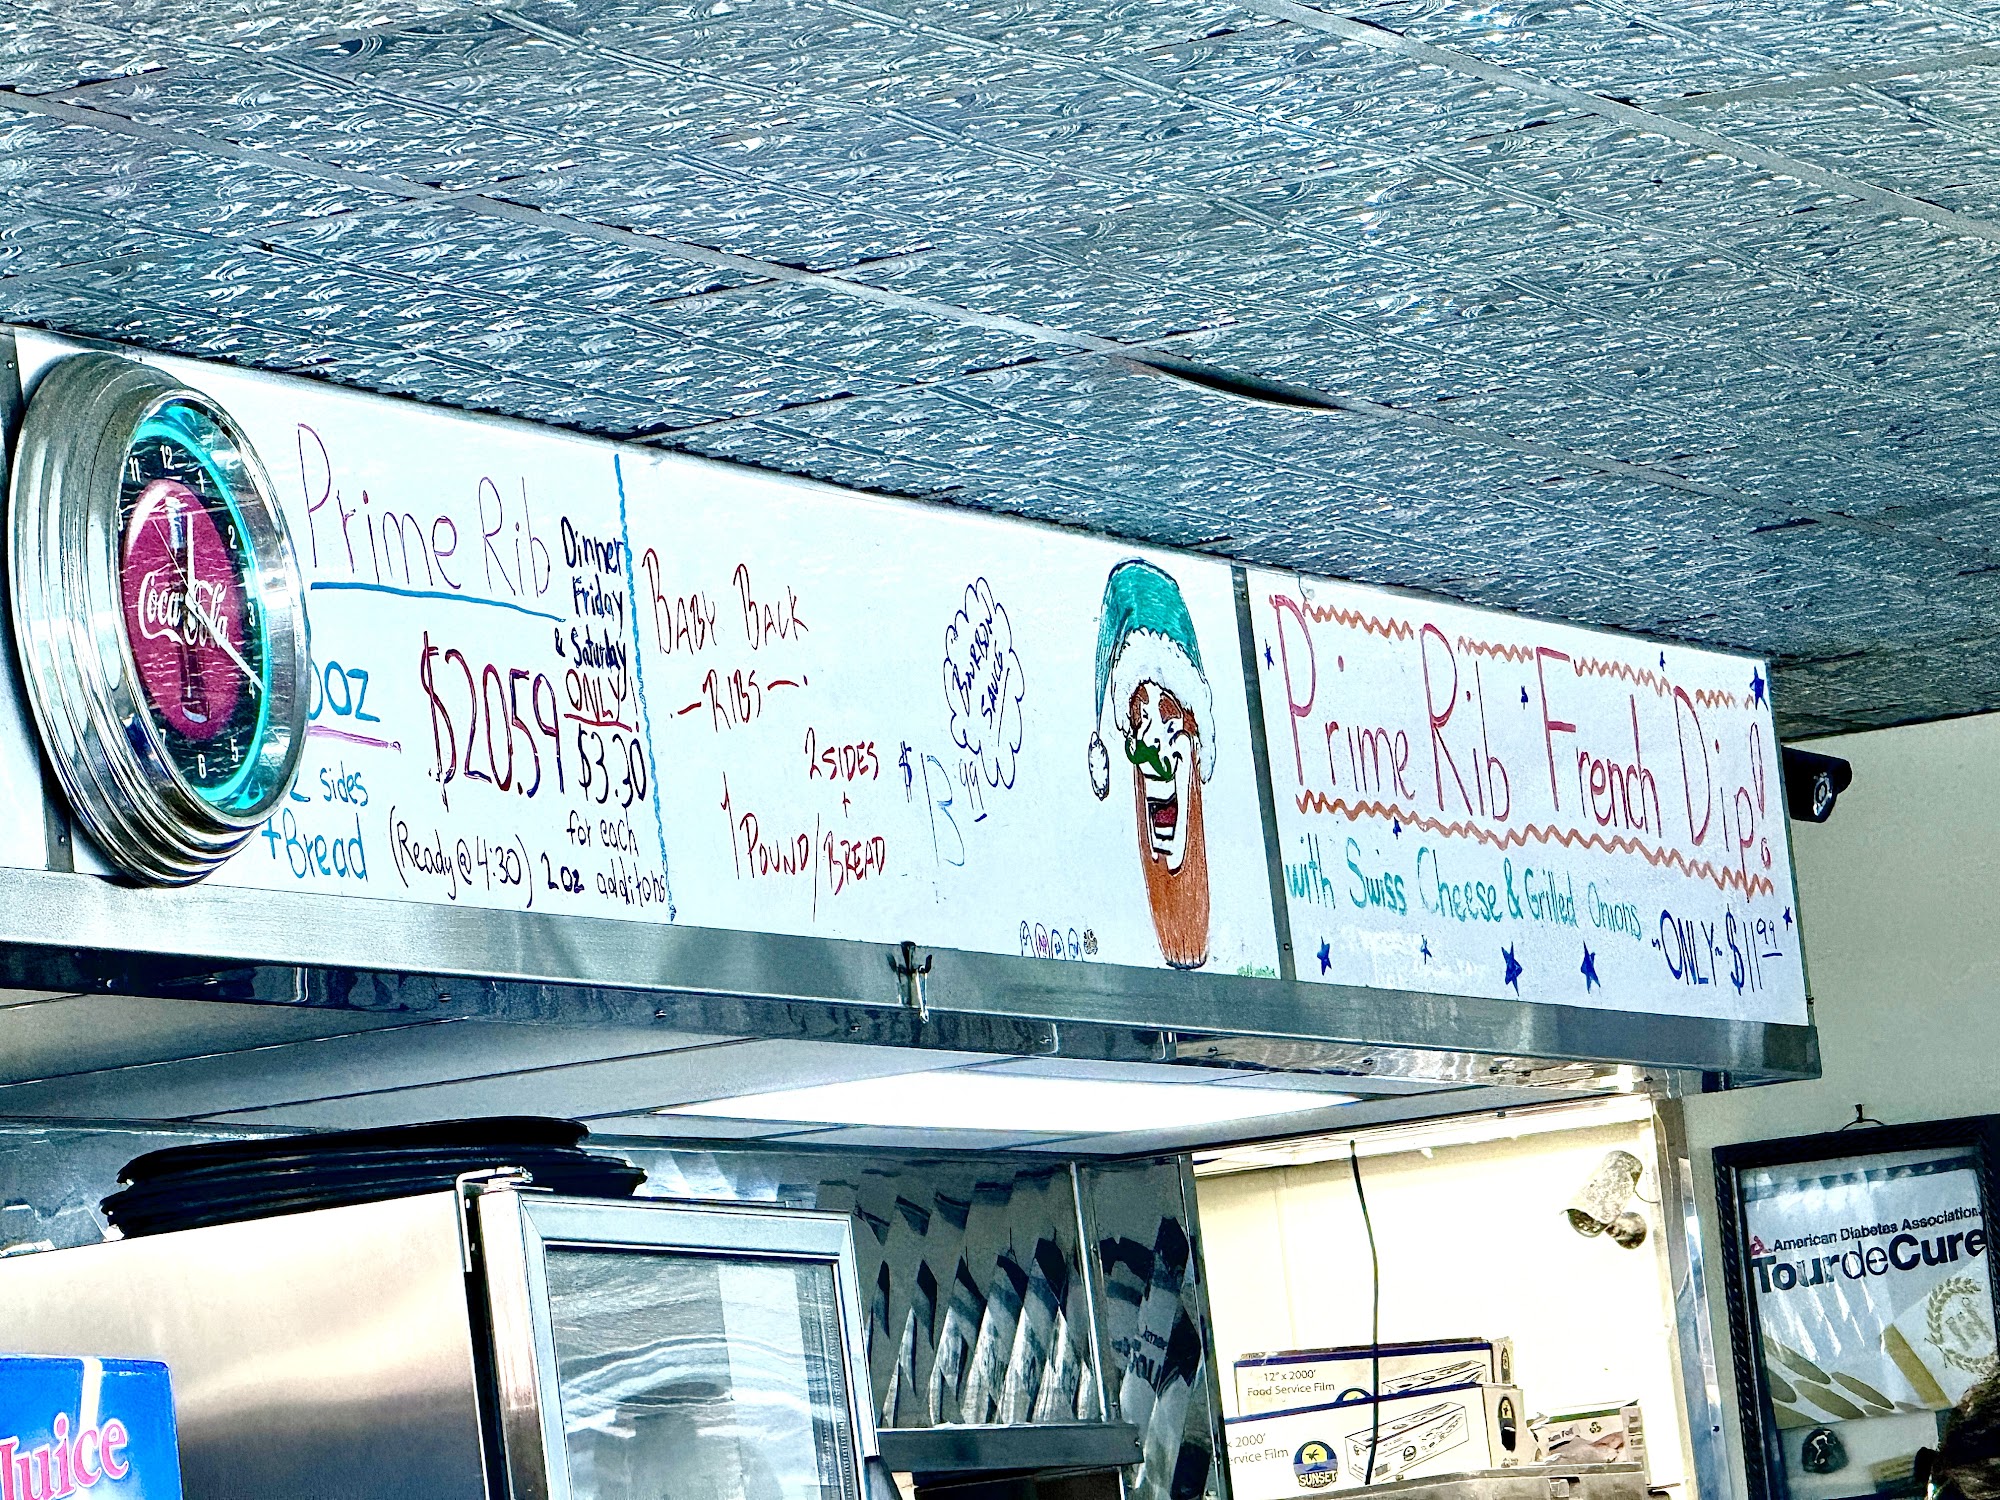 11 12 1
2
3
5
6
7
Coca-Cola
Prime Rib
Dinner
Friday
& Saturday
ONLY!
oz
$20.59
$3.30
for each
2oz additons
sides
+Bread
(Ready @ 4:30)
BABY BACK
-RIBS-
2 SIDES
+
1 POUND/BREAD
BOURBON
SAUCE
Prime Rib French Dip!
with Swiss Cheese & Grilled Onions
~ONLY~ $11.99
American Diabetes Association
TourdeCure
12" x 2000'
Food Service Film
x 2000'
ervice Film
SUNSET
Juice